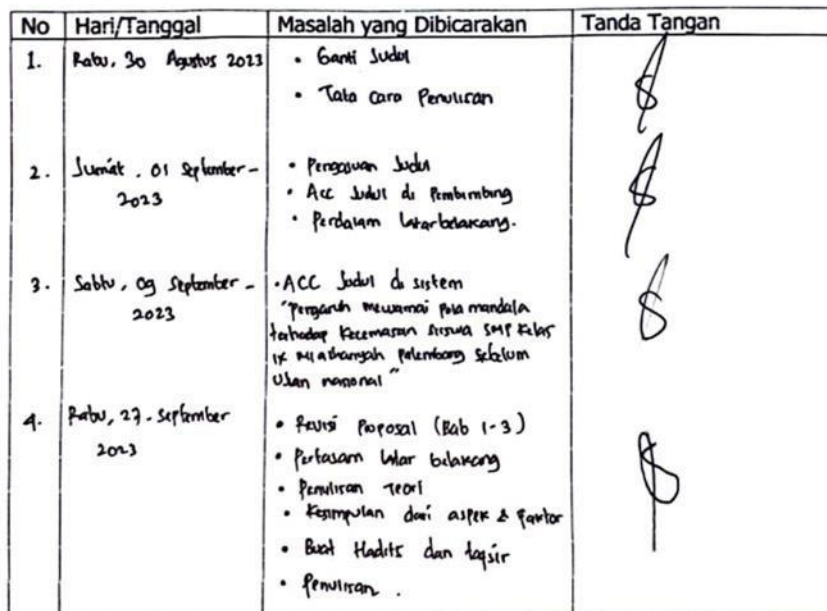 No Hari/Tanggal Masalah yang Dibicarakan Tanda Tangan
1. Rabu, 30 Agustus 2023 • Ganti Judul
• Tata Cara Penulisan
2. Jum'at, 01 September - • Pengajuan Judul
2023 • Acc Judul di Pembimbing
• Perdalam latar belakang.
3. Sabtu, 09 September - • ACC Judul di sistem
2023 "Pengaruh mewarnai pola mandala
terhadap kecemasan siswa SMP kelas
IX Palembang sebelum
Ujian nasional"
4. Rabu, 27 - September • Revisi Proposal (Bab 1-3)
2023 • latar belakang
• Penulisan Teori
• Kesimpulan dari aspek & Faktor
• Buat Hadits dan tafsir
• Penulisan.